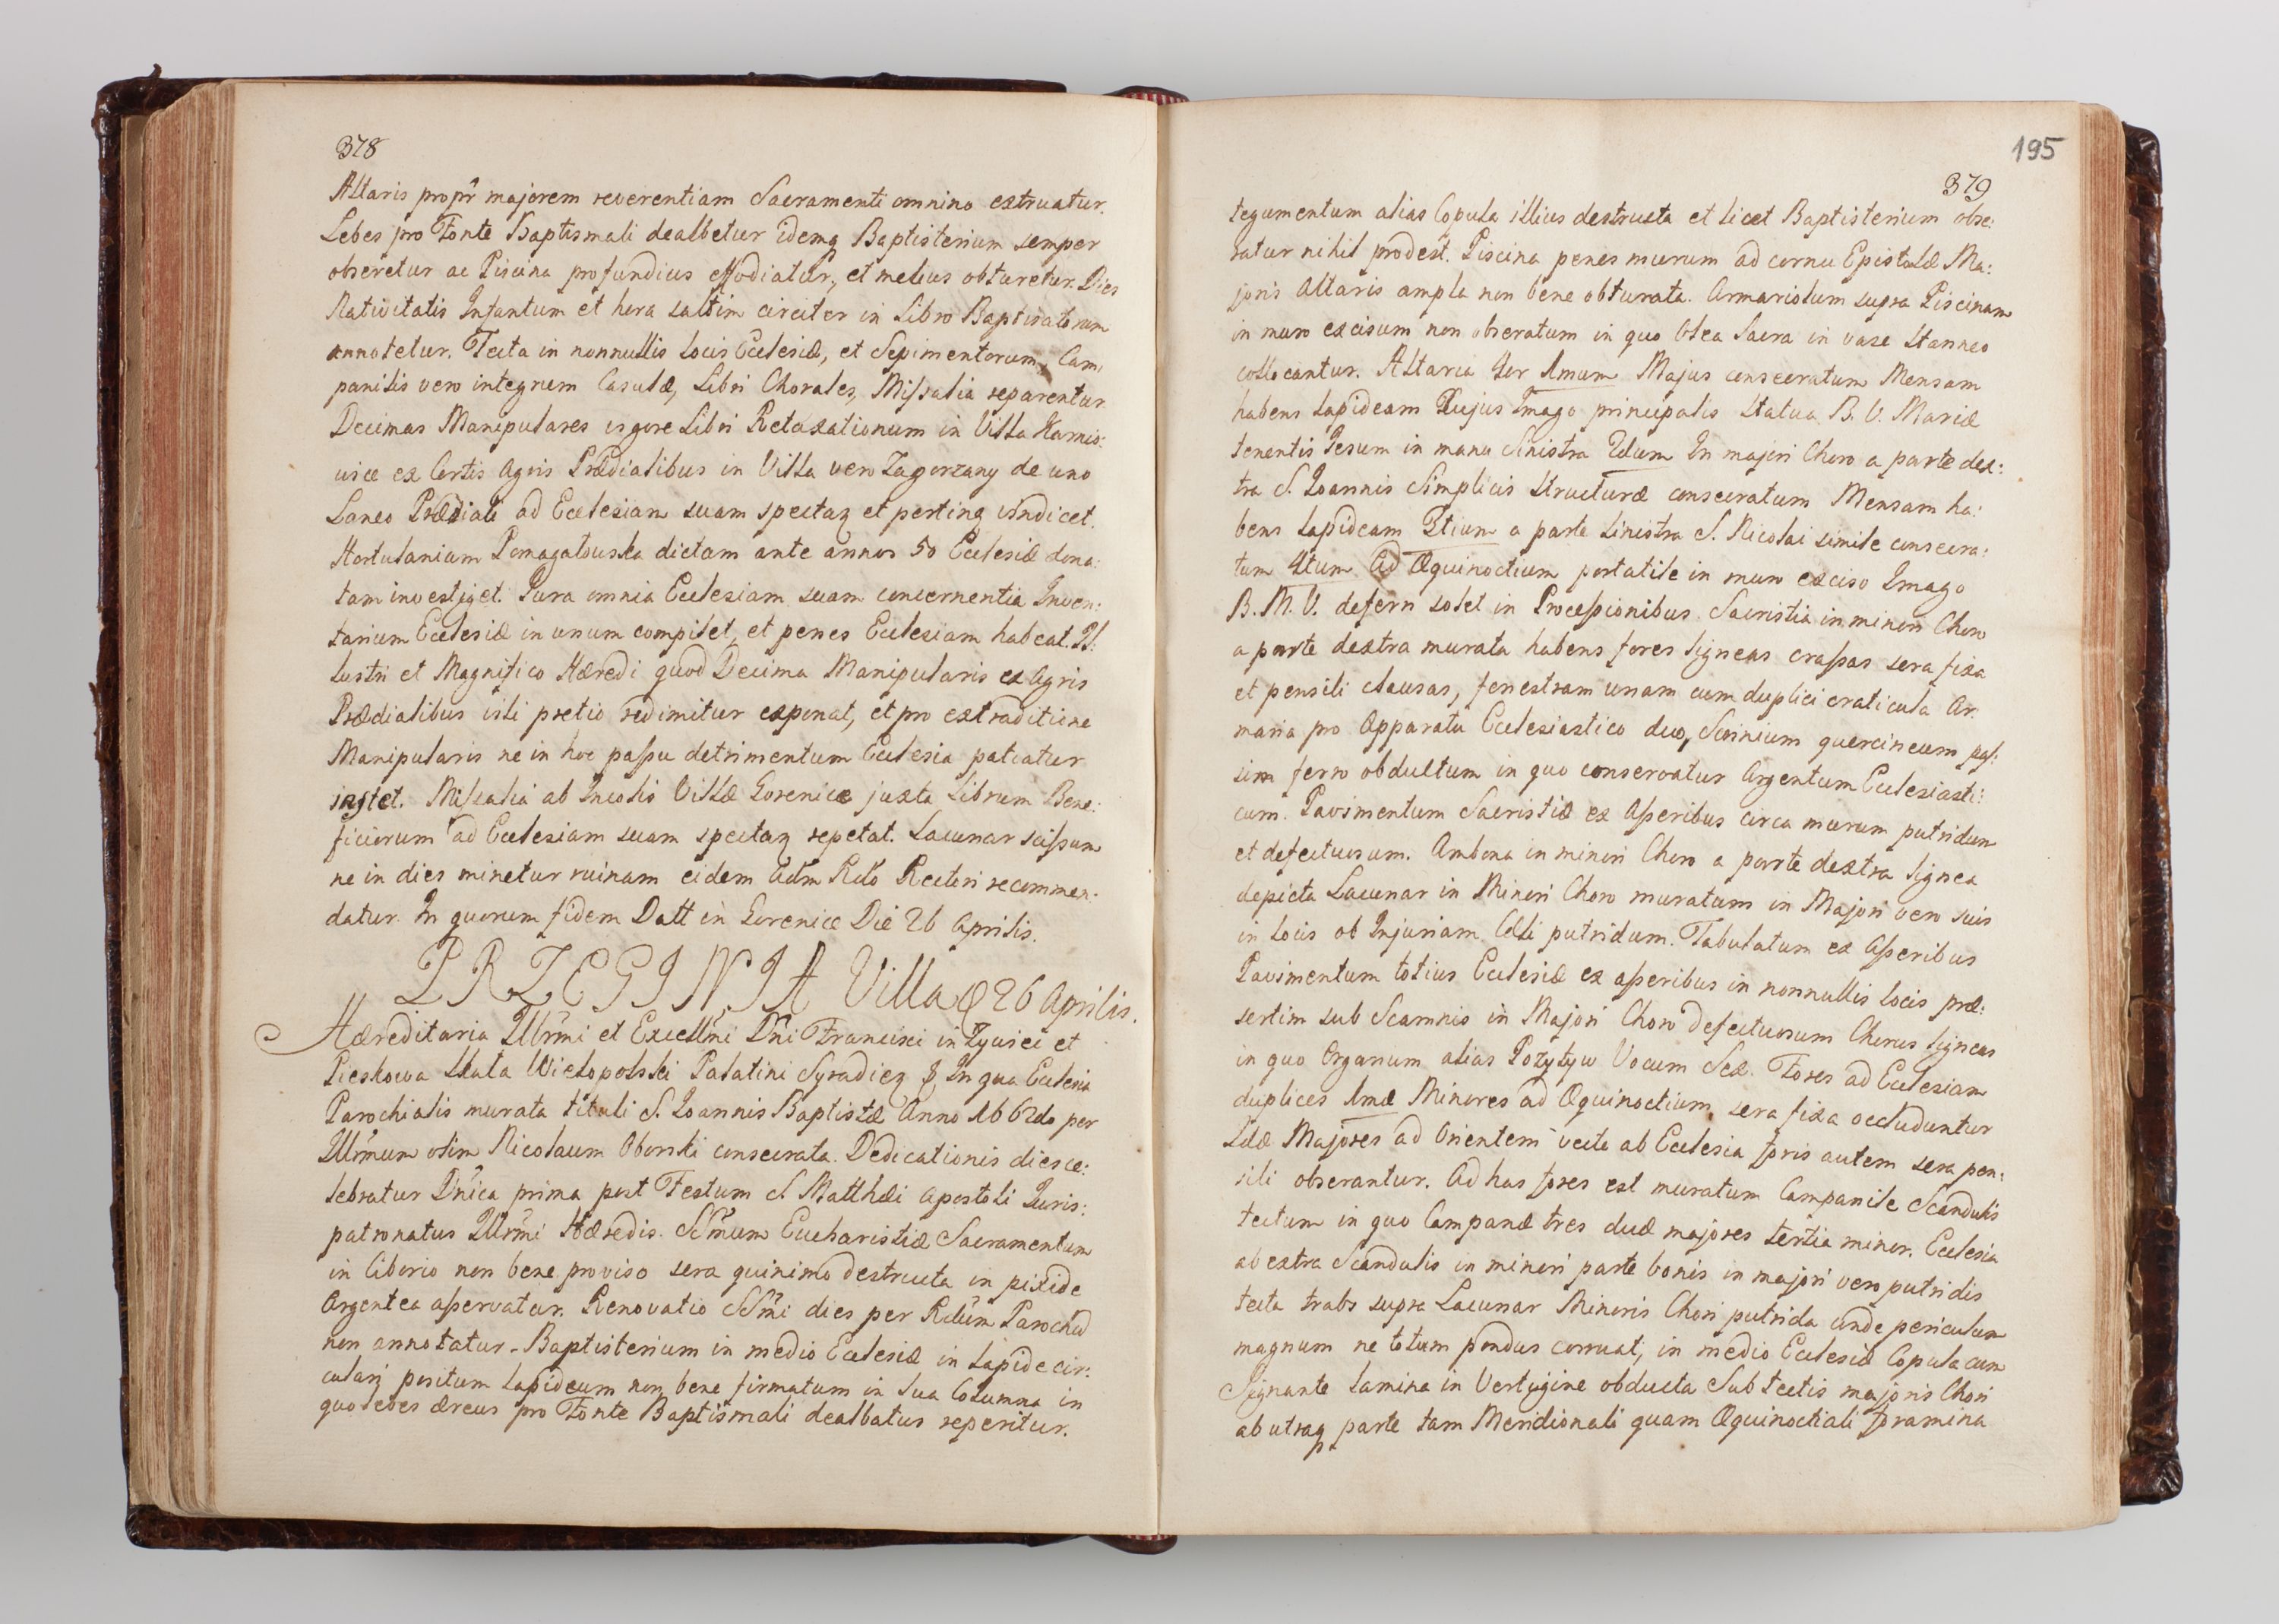 378
Altaris propr̃ majorem reverentiam Sacramenti omnino extruatur.
Lebes pro Fonte Baptismali dealbetur idemq Baptisterium semper
obseretur ac Piscina profundius effodiatur, et melius obturetur. Dies
Nativitatis Infantum et hora saltim circiter in Libro Baptisatorum
annotetur. Tecta in nonnullis locis Ecclesiæ, et Sepimentorum, Cam,
panilis vero integrum Casulæ, Libri Chorales, Missalia reparentur
Decimas Manipulares vigore Libri Retaxationum in Villa Karnio:
vice ex Certis Agris Prædialibus in Villa vero Zagorzany de uno
Laneo Prædiali ad Ecclesiam suam spectaz et pertinz vindicet.
Hortulaniam Pomagatowska dictam ante annos 50 Ecclesiæ dona:
tam investiget. Jura omnia Ecclesiam suam concernentia Inven:
tarium Ecclesiæ in unum compilet, et penes Ecclesiam habeat. Il:
lustri et Magnifico Hæredi quod Decima Manipularis ex Agris
Prædialibus vili pretio redimitur exponat, et pro extraditione
Manipularis ne in hoc passu detrimentum Ecclesia patiatur
instet. Missalia ab Incolis Villæ Gorenice juxta Librum Bene:
ficiorum ad Ecclesiam suam spectaz repetat. Lacunar scissum
ne in dies minetur ruinam eidem Adm Rdo Rectori recommen-
datur. In quorum fidem Datt in Gorenice Die 26 Aprilis.
PRZEGINIA Villa 26 Aprilis.
Hæreditaria Illr̃mi et Excellm̃i Dñi Francisci in Zywiec et
Pieskowa Skała Wielopolski Palatini Syradiez In qua Ecclesia
Parochialis murata tituli S. Joannis Baptistæ Anno 1662do per
Illr̃mum olim Nicolaum Oborski consecrata. Dedicationis dies ce:
lebratur Dñica prima post Festum S. Matthæi Apostoli Juris:
patronatus Illr̃mi Hæredis. SSm̃um Eucharistiæ Sacramentum
in Ciborio non bene proviso sera quinimo destructa in pixide
Argentea asservatur. Renovatio SSm̃i dies per Rdum Parochũ
non annotatur. Baptisterium in medio Ecclesiæ in lapide cir:
culari positum lapideum non bene firmatum in sua Columna in
quo Lebes æreus pro Fonte Baptismali dealbatus reperitur.
195
379
tegumentum alias Copula illius destructa et licet Baptisterium obse:
ratur nihil prodest. Piscina penes murum ad cornu Epistolæ Ma:
joris Altaris ampla non bene obturata. Armariolum supra Piscinam
in muro excisum non obseratum in quo Olea Sacra in vase Stanneo
collocantur. Altaria 4or 1mum Majus consecratum Mensam
habens lapideam Hujus Imago principalis Statua B. V. Mariæ
tenentis Jesum in manu Sinistra 2dum In majori Choro a parte dex:
tra S. Joannis Simplicis Structuræ consecratum Mensam ha:
bens lapideam 3tium a parte Sinistra S. Nicolai simile consecra:
tum 4tum Ad Æquinoctium portatile in muro exciso Imago
B. M. V. deferri solet in Processionibus. Sacristia in minori Choro
a parte dextra murata habens fores ligneas crassas sera fixa
et pensili clausas, fenestram unam cum duplici craticula Ar,
maria pro Apparatu Ecclesiastico duo, Scrinium quercineum pas:
sim ferro obductum in quo conservatur Argentum Ecclesiasti:
cum. Pavimentum Sacristiæ ex Asseribus circa murum putridum
et defectuosum. Ambona in minori Choro a parte dextra lignea
depicta Lacunar in Minori Choro muratum in Majori vero suis
in locis ob Injuriam Cæli putridum. Tabulatum ex Asseribus
Pavimentum totius Ecclesiæ ex asseribus in nonnullis locis præ:
sertim sub Scamnis in Majori Choro defectuosum Chorus ligneus
in quo Organum alias Pozytyw Vocum Sex. Fores ad Ecclesiam
duplices 1mæ Minores ad Æquinoctium sera fixa occluduntur
2dæ Majores ad Orientem vecte ab Ecclesia foris autem sera pen:
sili obserantur. Ad has fores est muratum Campanile Scandulis
tectum in quo Campanæ tres duæ majores tertia minor. Ecclesia
ab extra Scandulis in minori parte bonis in majori vero putridis
tecta trabs supra Lacunar Minoris Chori putrida unde periculum
magnum ne totum pondus corruat, in medio Ecclesiæ Copula cum
Signante lamina in Vertigine obducta Sub tectis majoris Chori
ab utraq parte tam Meridionali quam Æquinoctiali foramina